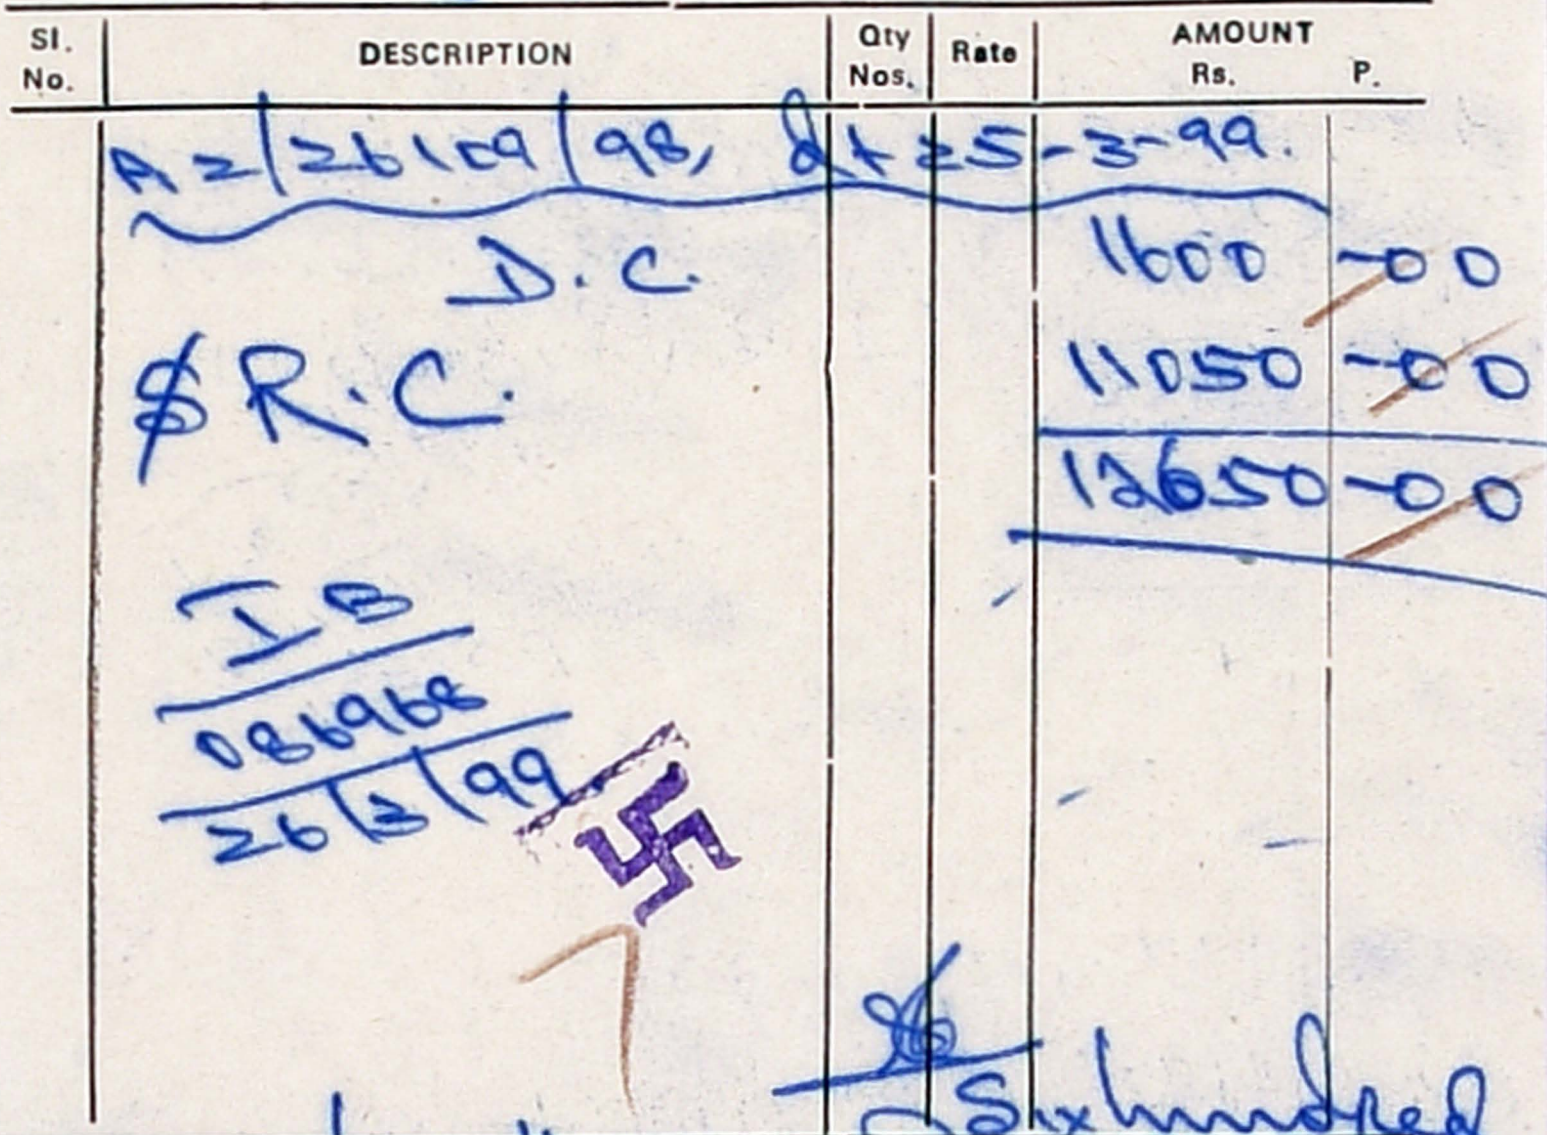 Sl. No. DESCRIPTION Qty Nos. Rate AMOUNT Rs. P.
A2/26109/98, dt 25-3-99.
D.C. 1600-00
$ R.C. 11050-00
12650-00
IB
086968
26/3/99
Six hundred